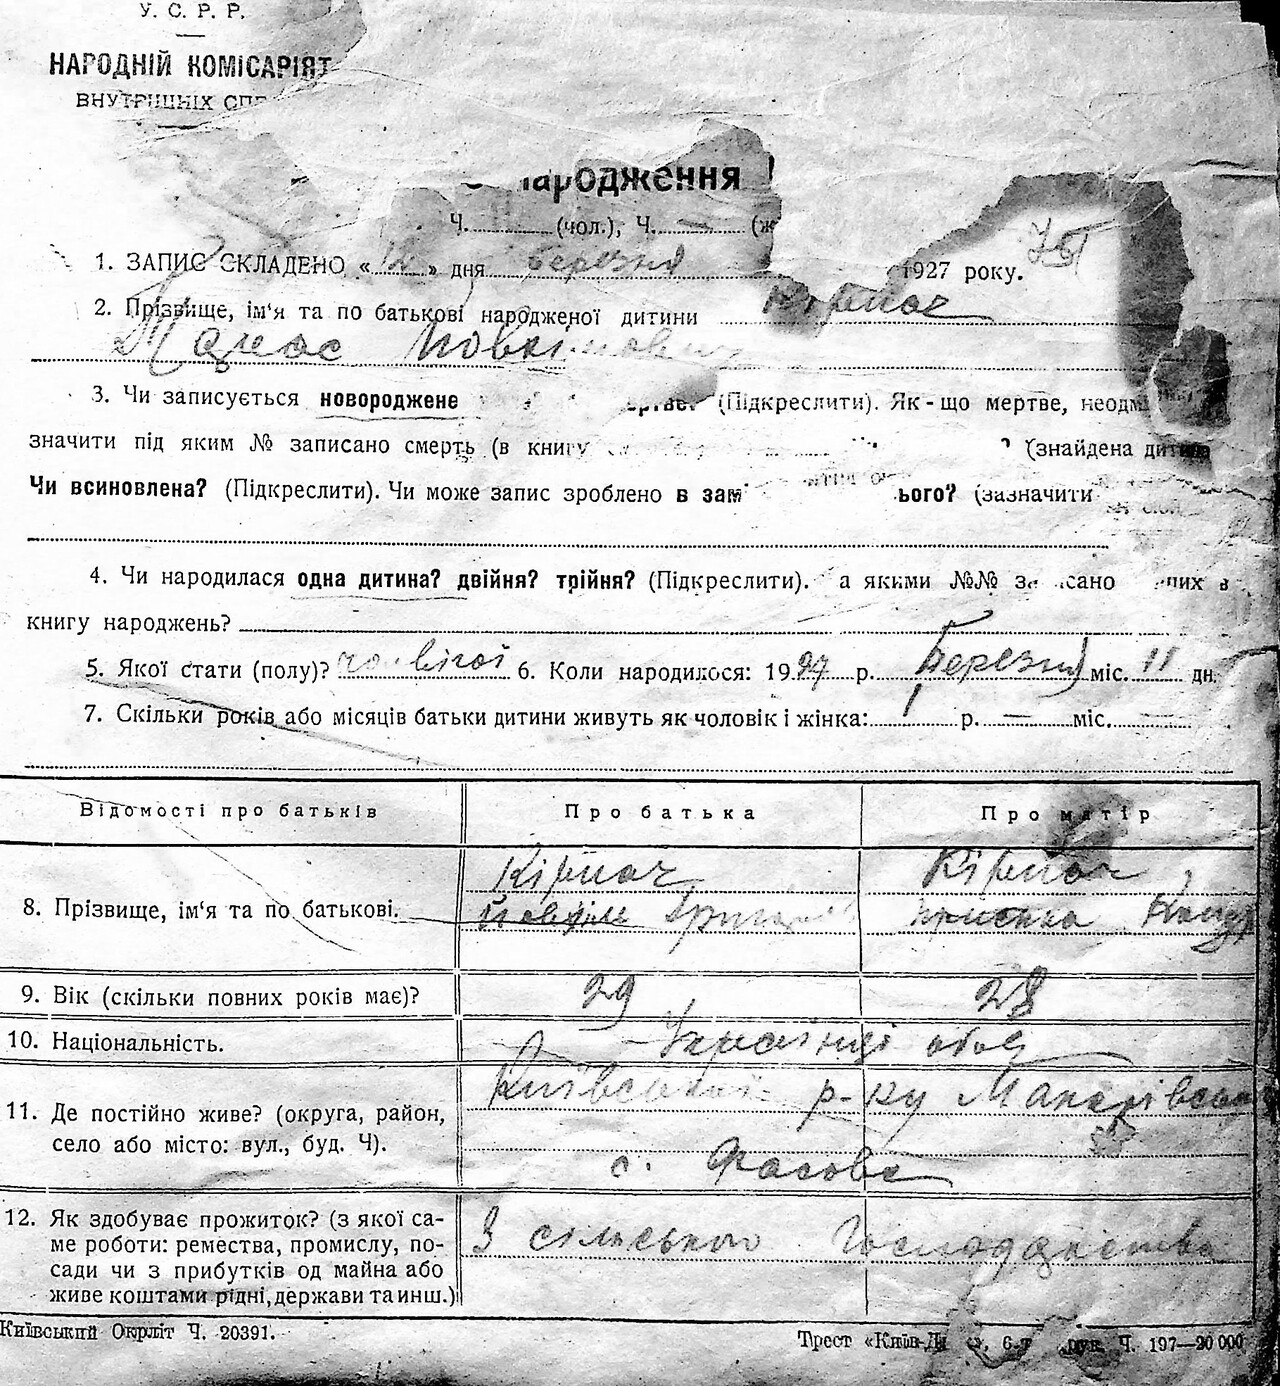 У. С. Р. Р.
НАРОДНІЙ КОМІСАРІЯТ
ВНУТРІШНІХ СПР
народження
Ч. (чол.), Ч. (ж
1. ЗАПИС СКЛАДЕНО «12» дня березня 1927 року.
2. Прізвище, ім'я та по батькові народженої дитини Кірпач
Тарас Йовхимович
3. Чи записується новороджене мертве? (Підкреслити). Як-що мертве, неодм
значити під яким № записано смерть (в книгу ? (знайдена дитина
Чи всиновлена? (Підкреслити). Чи може запис зроблено в зам ього? (зазначити
4. Чи народилася одна дитина? двійня? трійня? (Підкреслити). а якими №№ записано них в
книгу народжень?
5. Якої стати (полу)? чоловічої 6. Коли народилося: 1927 р. Березня міс. 11 дн.
7. Скільки років або місяців батьки дитини живуть як чоловік і жінка: 1 р. — міс. —
Відомості про батьків Про батька Про матір
Кірпач Кірпач
8. Прізвище, ім'я та по батькові. Йовхим Григор Пріська Конд
9. Вік (скільки повних років має)? 29 28
10. Національність. Українці обоє
Київської р-ку Макарівськ
11. Де постійно живе? (округа, район,
село або місто: вул., буд. Ч). с. Фасова
12. Як здобуває прожиток? (з якої са- З сільського Господарства
ме роботи: ремества, промислу, по-
сади чи з прибутків од майна або
живе коштами рідні, держави та инш.)
Київський Окрліт Ч. 20391. Трест «Київ-Д », 6-т друк. Ч. 197—20 000